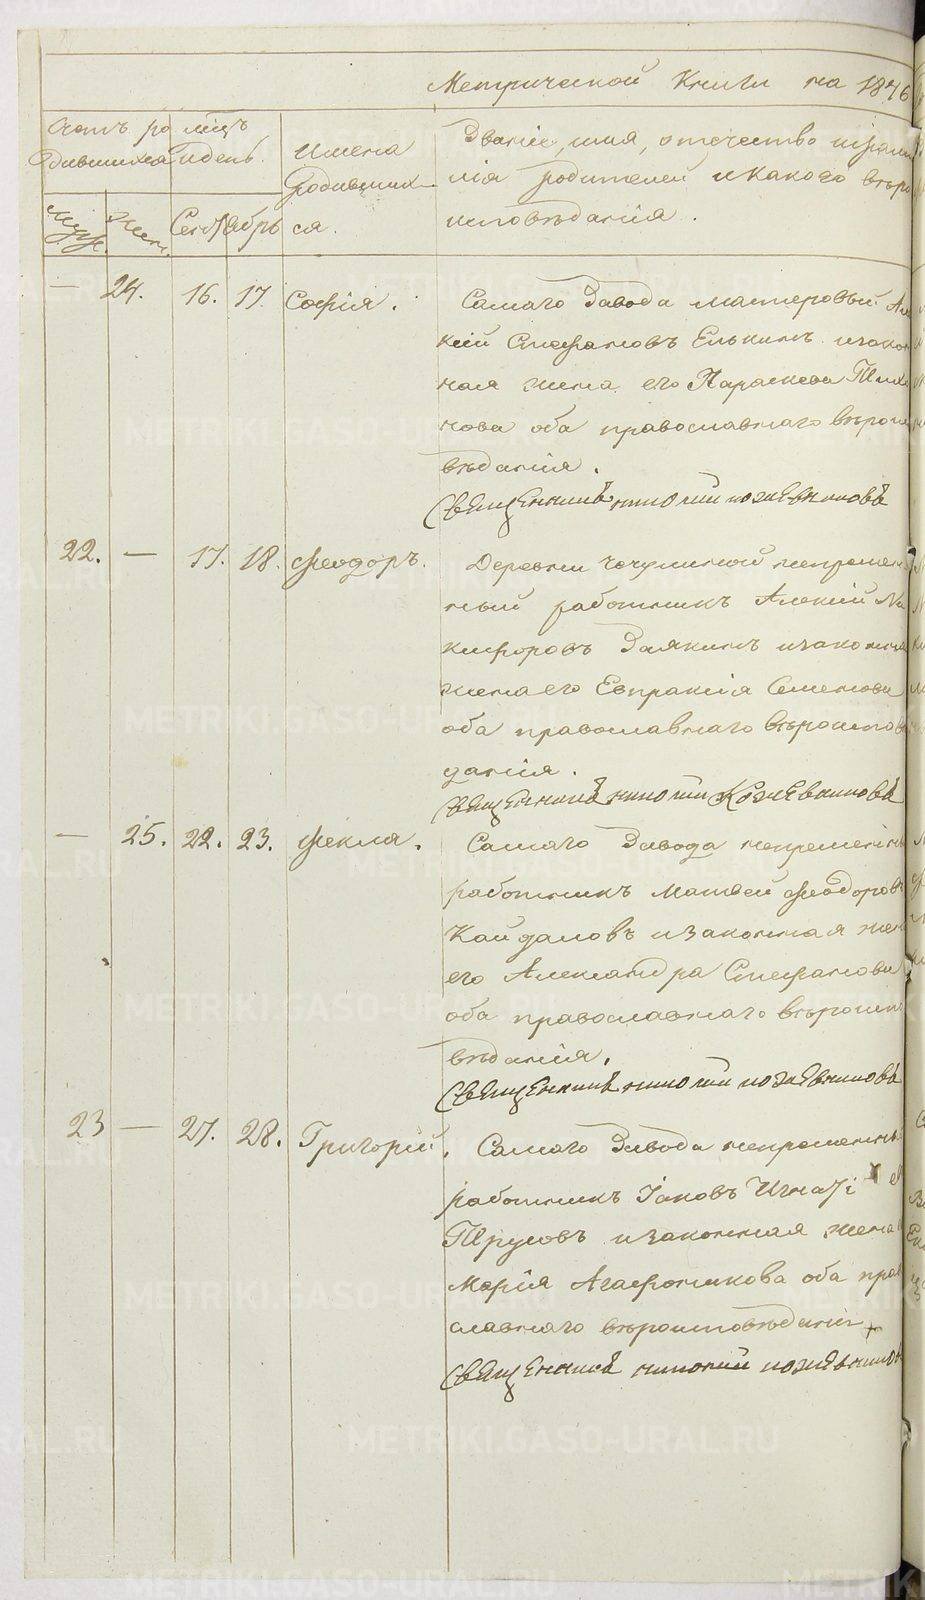 Метрической Книги на 1846
Счетъ ро
дившихся
мѣсяцъ
и день.
Имена
родивших
ся.
Званіе, имя, отчество и фами
лія родителей и какого вѣро
исповѣданія.
Муж.
Жен.
Сентябрь
— 24. 16. 17. Софія. Самаго Завода мастеровый Але
кѣй Стефановъ Елькинъ и закон
ная жена его Параскева Тихо
нова оба православнаго вѣроис
вѣданія.
Священникъ Кожевниковъ
22. — 17. 18. Феодоръ. Деревни непремен
ный работникъ Алексій Ни
кифоровъ Заякинъ и законная
жена его Евпраксія Семенова
оба православнаго вѣроиспов
данія.
Священникъ Кожевниковъ
— 25. 22. 23. Фекла. Самаго Завода непременны
работникъ Матвей Феодоров
Кайдаловъ и законная жен
его Александра Стефанова
оба православнаго вѣроисп
вѣданія.
Священникъ Кожевниковъ
23 — 27. 28. Григорій. Самаго Завода непременны
работникъ Іаковъ Игнатіе
Трусовъ и законная жена
Марія Агафоникова оба пра
славнаго вѣроисповѣданія
Священникъ Кожевников
METRIKI.GASO-URAL.RU